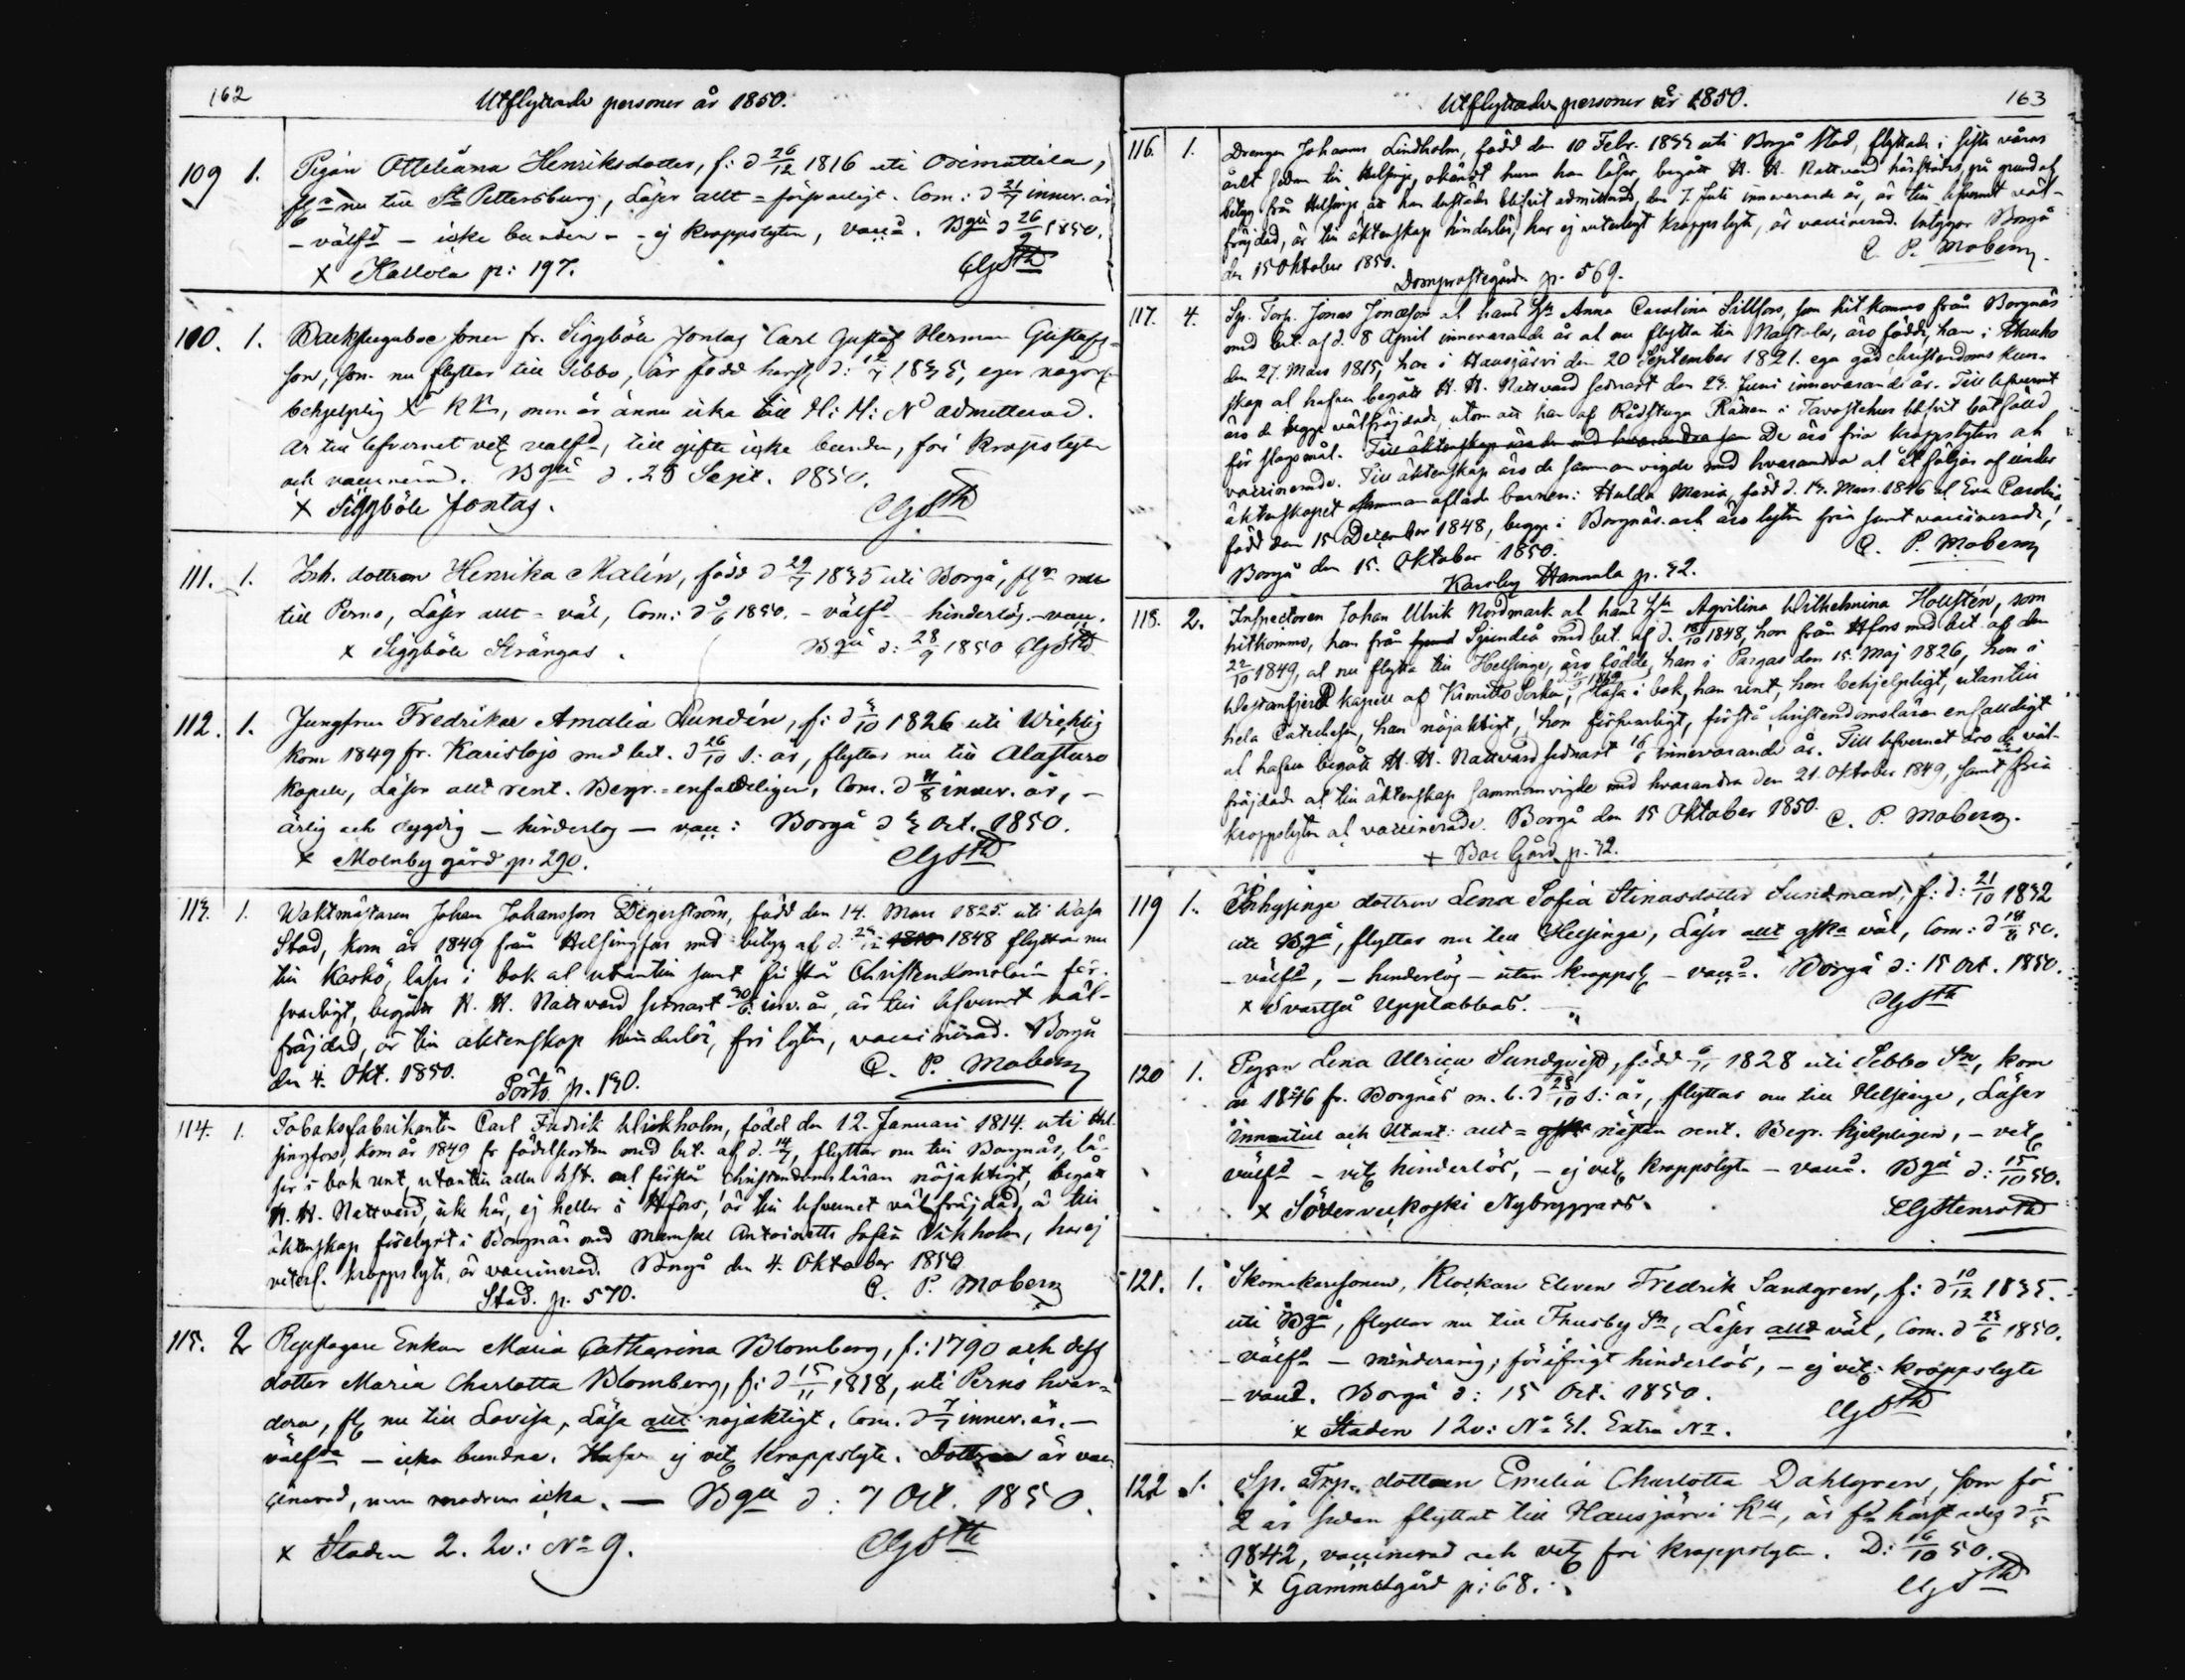 162
Utflyttade personer år 1850.
109 1. Pigan Otteliana Henriksdotter, f: d 26/12 1816 uti Orimattila,
nu till St Pettersburg, Läser allt = försvarligt. Com: d 21/7 innev. år
- välfd - icke bunden - ej kroppslyten, vacc. Bgå d 26/9 1850.
x Kallola p: 197.
110. 1. sonen fr. Siggböle Jontas Carl Gustaf Herman Gustafs=
son, som nu flyttar till Sibbo, är född
behjelplig men är ännu icke till H: H: N admitterad.
Är till lefvernet vet. välfd, till gifte icke bunden, fri kroppslyten
och vaccinerad. Bgå d. 28 Sept. 1850.
x Siggböle Jontas.
111. 1. Inh. dottren Henrika Malén, född d 29/7 1835 uti Borgå, nu
till Perno, Läser allt = väl, Com: 1850. - välfd - hinderlös. - vacc.
x Siggböle Strångas. Bgå d: 28/9 1850
112. 1. Jungfrun Fredrika Amalia Lundén, f: d 3/10 1826 uti Wichtis
kom 1849 fr. Karislojo med bet. d 26/10 s: år, flyttar nu till Alastaro
kapell, Läser allt rent. Begr. = enfaldeligen, Com. d 11/8 innev. år, -
ärlig och dygdig - hinderlös - vacc: Borgå d 3 Oct. 1850.
x Molnby gård p: 290.
113. 1. Waktmästaren Johan Johansson Degerström, född den 14. Mars 1825. uti Wasa
Stad, kom år 1849 från Helsingfors med betyg af d. 1848 flyttar nu
till Kaskö, läser i bok och utantill samt förstår Christendomsläran för-
svarligt, begått H. H. Nattvard sednast innev. år, är till lefvernet väl-
fräjdad, är till äktenskap hinderlös, fri lyten, vaccinerad. Borgå
den 4. Okt. 1850. C. P. Moberg
Porto p. 190.
114. 1. Tobaksfabrikanten Carl Fredrik Wickholm, född den 12. Januari 1814. uti Hel-
singfors, kom år 1849 fr födelseorten med bet. af d. 14/7, flyttar nu till Borgnäs, lä-
ser i bok rent, utantill allt och förstår Christendomsläran nöjaktigt, begått
H. H. Nattvard, icke här, ej heller i Hfors, är till lefvernet välfräjdad, är till
äktenskap förelyst i Borgnäs med Mamsell Antoinette Sofia Wikholm, har ej
veterl. kroppslyte, är vaccinerad. Borgå den 4. Oktober 1850
Stad. p. 570. C. P. Moberg
115. 2 Repslagare Enkan Maria Catharina Blomberg, f: 1790 och dess
dotter Maria Charlotta Blomberg, f: d 15/11 1818, uti Perno hvar=
dera, nu till Lovisa, Läsa allt nöjaktigt. Com. d 7/7 innev. år. -
välfda - icke bundna. Hafva ej vet. kroppslyte. Dottren är vac-
cinerad, men modren icke. - Bgå d: 7 Oct. 1850.
x Staden 2. Qv: No 9.
163
Utflyttade personer år 1850.
116. 1. Drengen Johannes Lindholm, född den 10 Febr. 1833 uti Borgå Stad, flyttade i sista våras
härifrån till Helsinge, okändt huru han läser, begått H. H. Nattvard härstädes, på grund af
betyg från Helsinge att han derstädes blifvit admitterad, den 7. Juli innevarande år, är till lefvernet väl-
fräjdad, är till äktenskap hinderlös, har ej veterligt kroppslyte, är vaccinerad. Intygar Borgå
den 15 Oktober 1850. C. P. Moberg.
Domprostegården p. 569.
117. 4. Sp. Torp. Jonas Jonasson och hans Hu Anna Carolina Sillfors, som hitkommo från Borgnäs
med bet. af d. 8 April innevarande år och nu flytta till Nastola, äro födde, han i Hauho
den 27. Mars 1815, hon i Hausjärvi den 20 September 1821. ega god christendoms kun-
skap och hafva begått H. H. Nattvard sednast den 23. Juni innevarande år. Till lefvernet
äro de begge välfräjdade, utom att han af Rådstugu Rätten i Tavastehus blifvit botfälld
för slagsmål. Till äktenskap äro de med hvarandra De äro fria kroppslyten och
vaccinerade. Till äktenskap äro de sammanvigde med hvarandra och åtföljas af under
äktenskapet sammanaflade barnen: Hulda Maria, född d. 13. Mars. 1846 och Eva Carolina
född den 15 December 1848, begge i Borgnäs. och äro lyten fria samt vaccinerade,
Borgå den 15. Oktober 1850. C. P. Moberg
Karsby Hannula p. 32.
118. 2. Inspectoren Johan Ulrik Nordmark och hans Hu Agvilina Wilhelmina Hollstén, som
hitkommo, han från Sjundeå med bet. af d. 18/10 1848, hon från Hfors med bet. af den
22/10 1849, och nu flytta till Helsinge, äro födde, han i Pargas den 15. Maj 1826, hon i
Westanfjerd kapell af Kimitto Socken, läsa i bok, han rent, hon behjelpligt, utantill
hela Catechesen, han nöjaktigt, hon försvarligt, förstå christendomsläran enfaldigt
och hafva begått H. H. Nattvard sednast innevarande år. Till lefvernet äro de väl-
fräjdade och till äktenskap sammanvigde med hvarandra den 21. Oktober 1849, samt äro fria
kroppslyten och vaccinerade. Borgå den 15 Oktober 1850. C. P. Moberg.
+ Boe Gård p. 32.
119 1. Inhysinge dottren Lena Sofia Stinasdotter Sundman, f: d: 21/10 1832
uti Bgå, flyttar nu till Helsinge, Läser allt gska väl, Com: d 18/8 50.
- välfd, - hinderlös - utan kroppsl - vacc. Borgå d: 15 Oct. 1850.
x Svartså Upptabbas.
120 1. Pigan Lena Ulrica Sundqvist, född 1828 uti Sibbo Sn, kom
år 1846 fr. Borgnäs m. b. d 28/10 s: år, flyttar nu till Helsinge, Läser
Innantill och Utant: allt = nästen rent. Begr. hjelpligen, - vet.
välfd - vet. hinderlös, - ej vet. kroppslyte - vacc. Bgå d: 15/10 50.
x Söderveckoski Nybryggars. CGStenroth
121. 1. Skomakaresonen, Klockare Eleven Fredrik Sandgren, f: d 10/12 1835.
uti Bgå, flyttar nu till Thusby Sn, Läser allt väl, Com. d 23/6 1850.
- välfd - minderårig; föröfrigt hinderlös, - ej vet: kroppslyte
- vacc. Borgå d: 15 Oct. 1850.
x Staden 1 Qv: No 31. Extra No.
122. 1. Sp. Trp. dottren Emelia Charlotta Dahlgren, som för
2 år sedan flyttat till Hausjärvi är född härstädes
1842, vaccinerad och vet. fri kroppslyten. D: 16/10 50.
x Gammelgård p: 68.